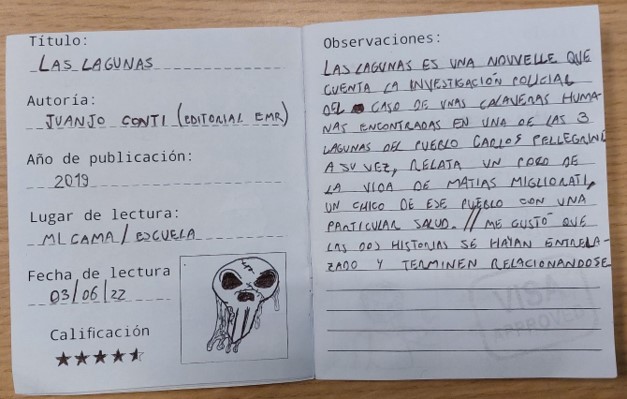 Título:
LAS LAGUNAS
Autoría:
JUANJO CONTI (EDITORIAL EMR)
Año de publicación:
2019
Lugar de lectura:
MI CAMA / ESCUELA
Fecha de lectura
03/06/22
Calificación
Observaciones:
LAS LAGUNAS ES UNA NOUVELLE QUE
CUENTA LA INVESTIGACIÓN POLICIAL
DEL CASO DE UNAS CALAVERAS HUMA-
NAS ENCONTRADAS EN UNA DE LAS 3
LAGUNAS DEL PUEBLO CARLOS PELLEGRINI
A SU VEZ, RELATA UN POCO DE
LA VIDA DE MATIAS MIGLIORATI,
UN CHICO DE ESE PUEBLO CON UNA
PARTICULAR SALUD. // ME GUSTÓ QUE
LAS DOS HISTORIAS SE HAYAN ENTRELA-
ZADO Y TERMINEN RELACIONANDOSE
VISA
APPROVED